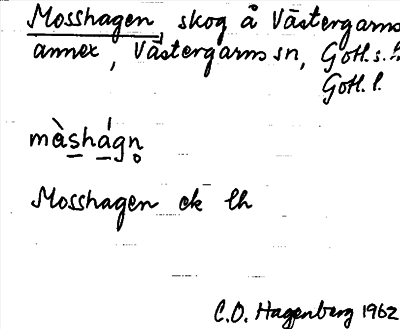 Mosshagen, skog å Västergarns
annex, Västergarns sn, Gotl. s. h.
Gotl. l.
màshágn̥
Mosshagen ek lh
C.O. Hagenberg 1962